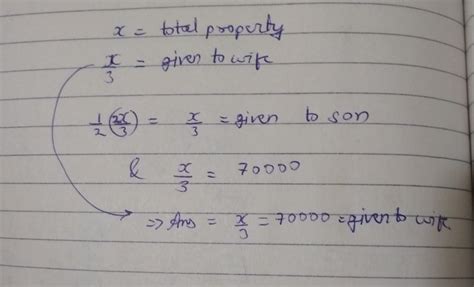 x = total property
x/3 = given to wife
1/2 (2x/3) = x/3 = given to son
& x/3 = 70000
=> Ans = x/3 = 70000 = given to wife